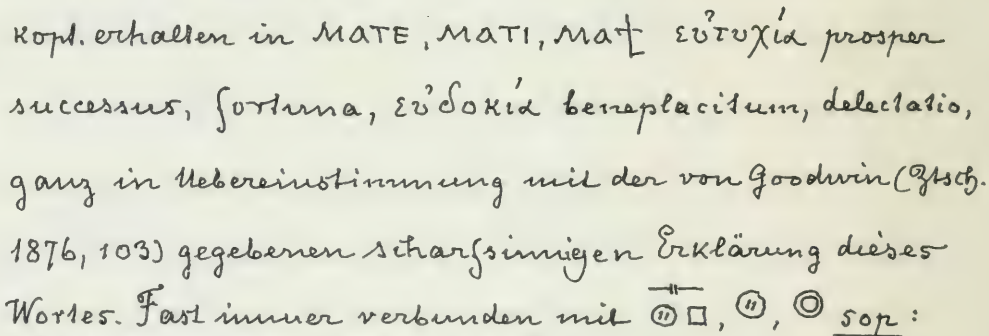 kopt. erhalten in ⲙⲁⲧⲉ, ⲙⲁⲧⲓ, ⲙⲁϯ εὐτυχία prosper
successus, fortuna, εὐδοκία beneplacitum, delectatio,
ganz in Uebereinstimmung mit der von Goodwin (Ztsch.
1876, 103) gegebenen scharfsinnigen Erklärung dieses
Wortes. Fast immer verbunden mit , , sop :